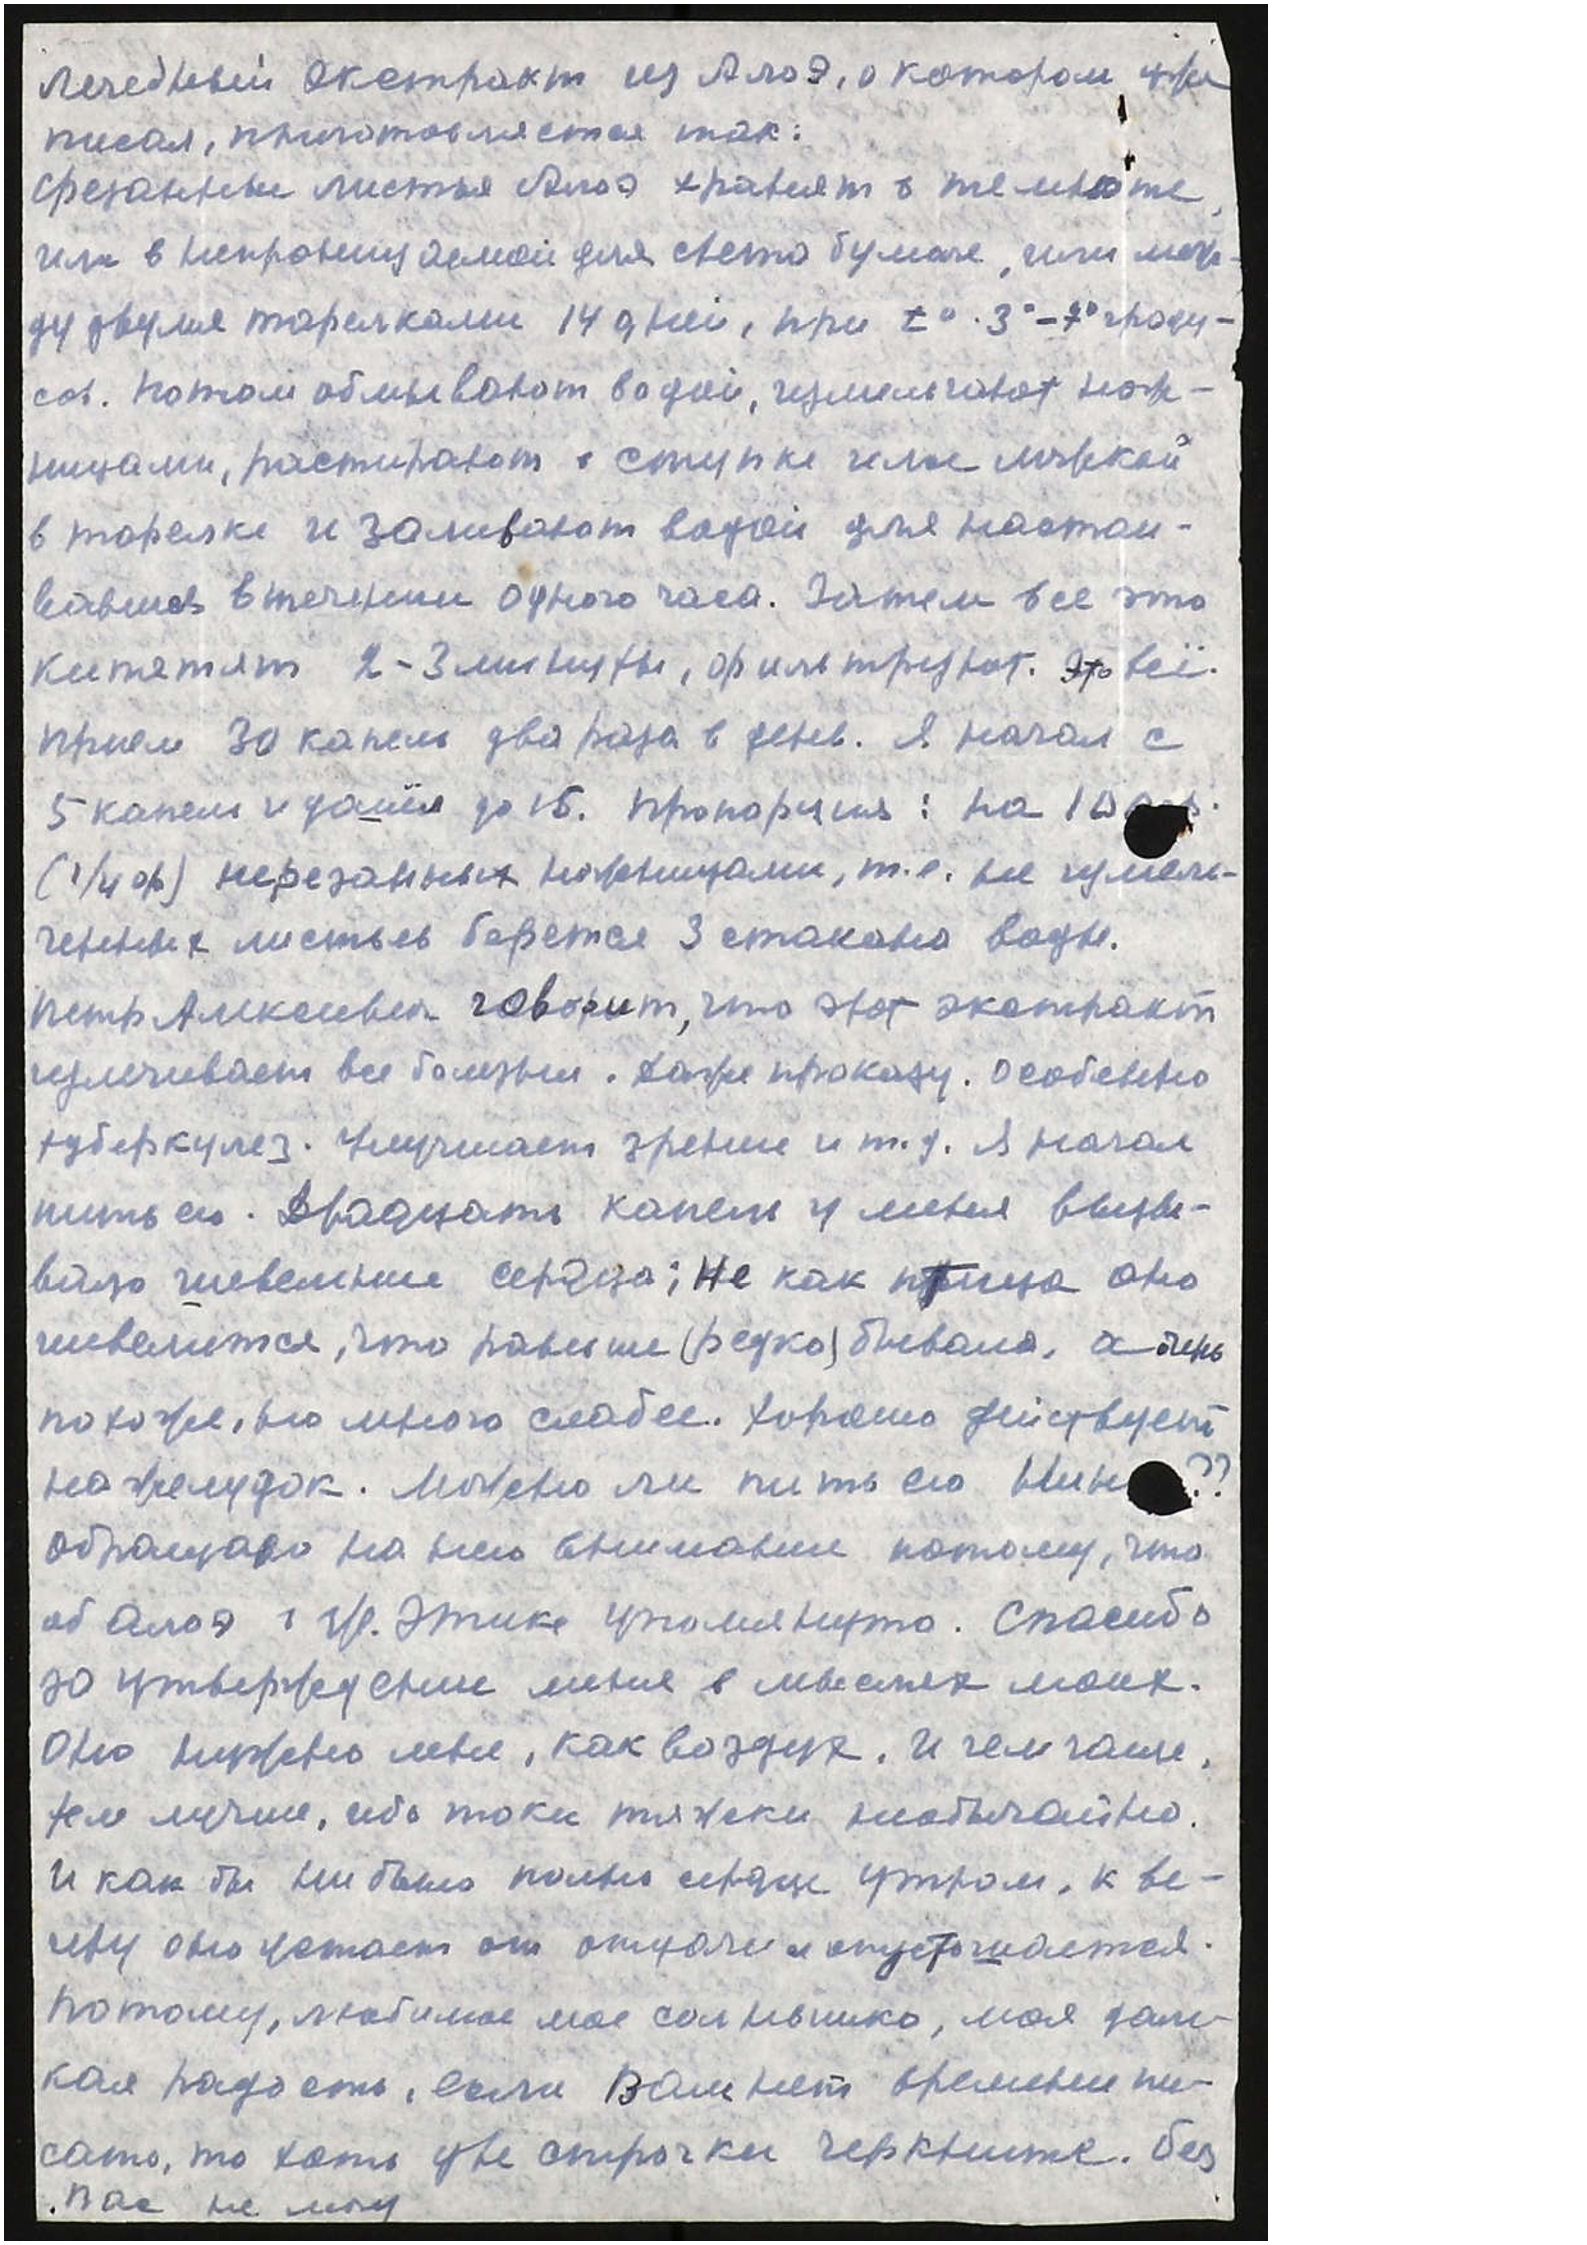 Лечебный Экстракт из Алоэ, о котором уже
писал, приготовляется так:
Срезанные листья Алоэ хранят в темноте,
или в непроницаемой для света бумаге, или меж-
ду двумя тарелками 14 дней, при t° 3°-7° граду-
сов. Потом обмывают водой, измельчают нож-
ницами, растирают в ступке или ложкой
в тарелке и заливают водой для настаи-
вания в течении одного часа. Затем все это
кипятят 2-3 минуты, фильтруют. Это всё.
Прием 30 капель два раза в день. Я начал с
5 капель и дошел до 15. Пропорция: на 100 гр.
(1/4 ф) нерезанных ножницами, т.е. не измель-
ченных листьев берется 3 стакана воды.
Петр Алексеевич говорит, что этот экстракт
излечивает все болезни. Даже проказу. Особенно
туберкулез. Улучшает зрение и т.д. Я начал
пить его. Двадцать капель у меня вызы-
вало шевеление сердца; Не как птица оно
шевелится, что раньше (редко) бывало, а очень
похоже, но много слабее. Хорошо действует
на желудок. Можно ли пить его Нине??
Обращаю на него внимание потому, что
об алоэ в Ж. Этике упомянуто. Спасибо
за утверждение меня в мыслях моих.
Оно нужно мне, как воздух. И чем чаще,
тем лучше, ибо токи тяжки необычайно.
И как бы ни было полно сердце утром, к ве-
черу оно устает от отдачи и опустошается.
Потому, любимое мое солнышко, моя дале-
кая радость, если Вам нет времени пи-
сать, то хоть две строчки черкните. Без
Вас не могу